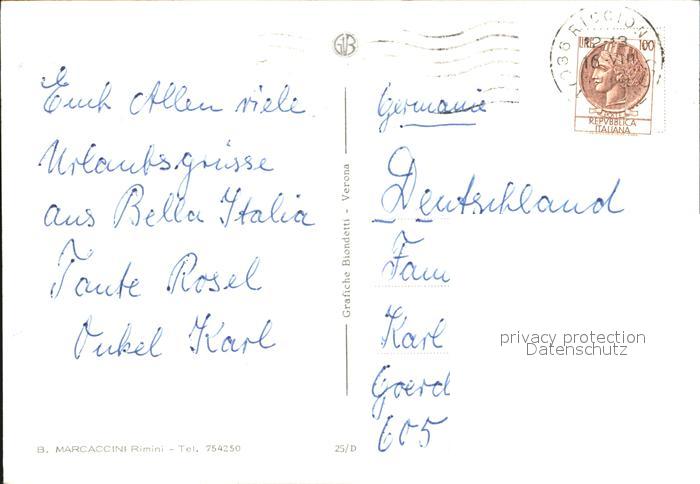 Euch Allen viele
Urlaubsgrüsse
aus Bella Italia
Tante Rosel
Onkel Karl
B. MARCACCINI Rimini - Tel. 754250
25/D
Grafiche Biondetti - Verona
GVB
RICCION
LIRE 100
REPVBBLICA
ITALIANA
Germanie
Deutschland
Fam
Karl
Goerd
605
privacy protection
Datenschutz